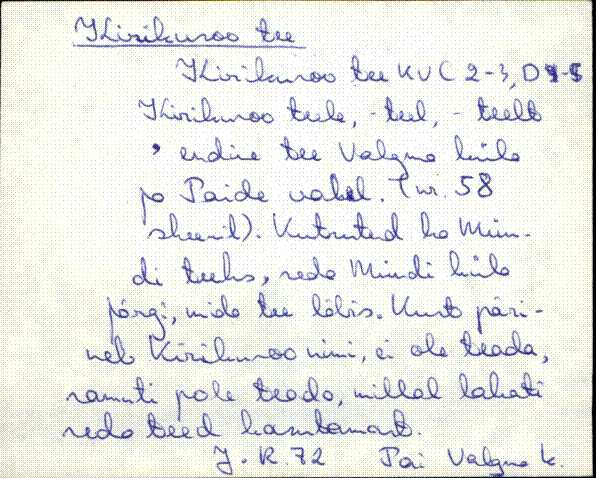 Kirikuroo tee
Kirikuroo tee KV C 2-3, D
Kirikuroo teele, -teel, -teelt
endine tee Valgma küla
ja Paide vahel. (nr. 58
skeemil). Kutsuted ka Mün-
di teeks, seda Mündi küla
järgi, mida tee läbis. Kust päri-
neb Kirikuroo nimi, ei ole teada,
samuti pole teada, millal lakati
seda teed kasutamast.
J. K. 72 Pai Valgma k.